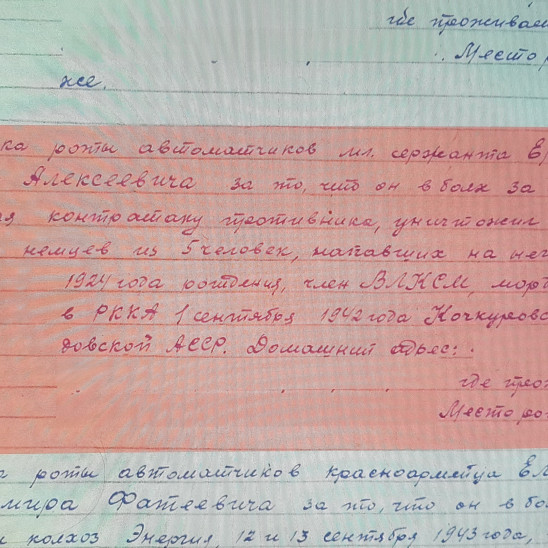 где проживае
Место р
же.
ка роты автоматчиков мл. сержанта Е
Алексеевича за то, что он в боях за
я контратаку противника, уничтожил
немцев из 5 человек, напавших на нег
1924 года рождения, член ВЛКСМ, морд
в РККА 1 сентября 1942 года Кочкуровс
довской АССР. Домашний адрес:
где прож
Место рож
а роты автоматчиков красноармейца Ел
мира Фатеевича за то, что он в бо
и колхоз Энергия, 12 и 13 сентября 1943 года,